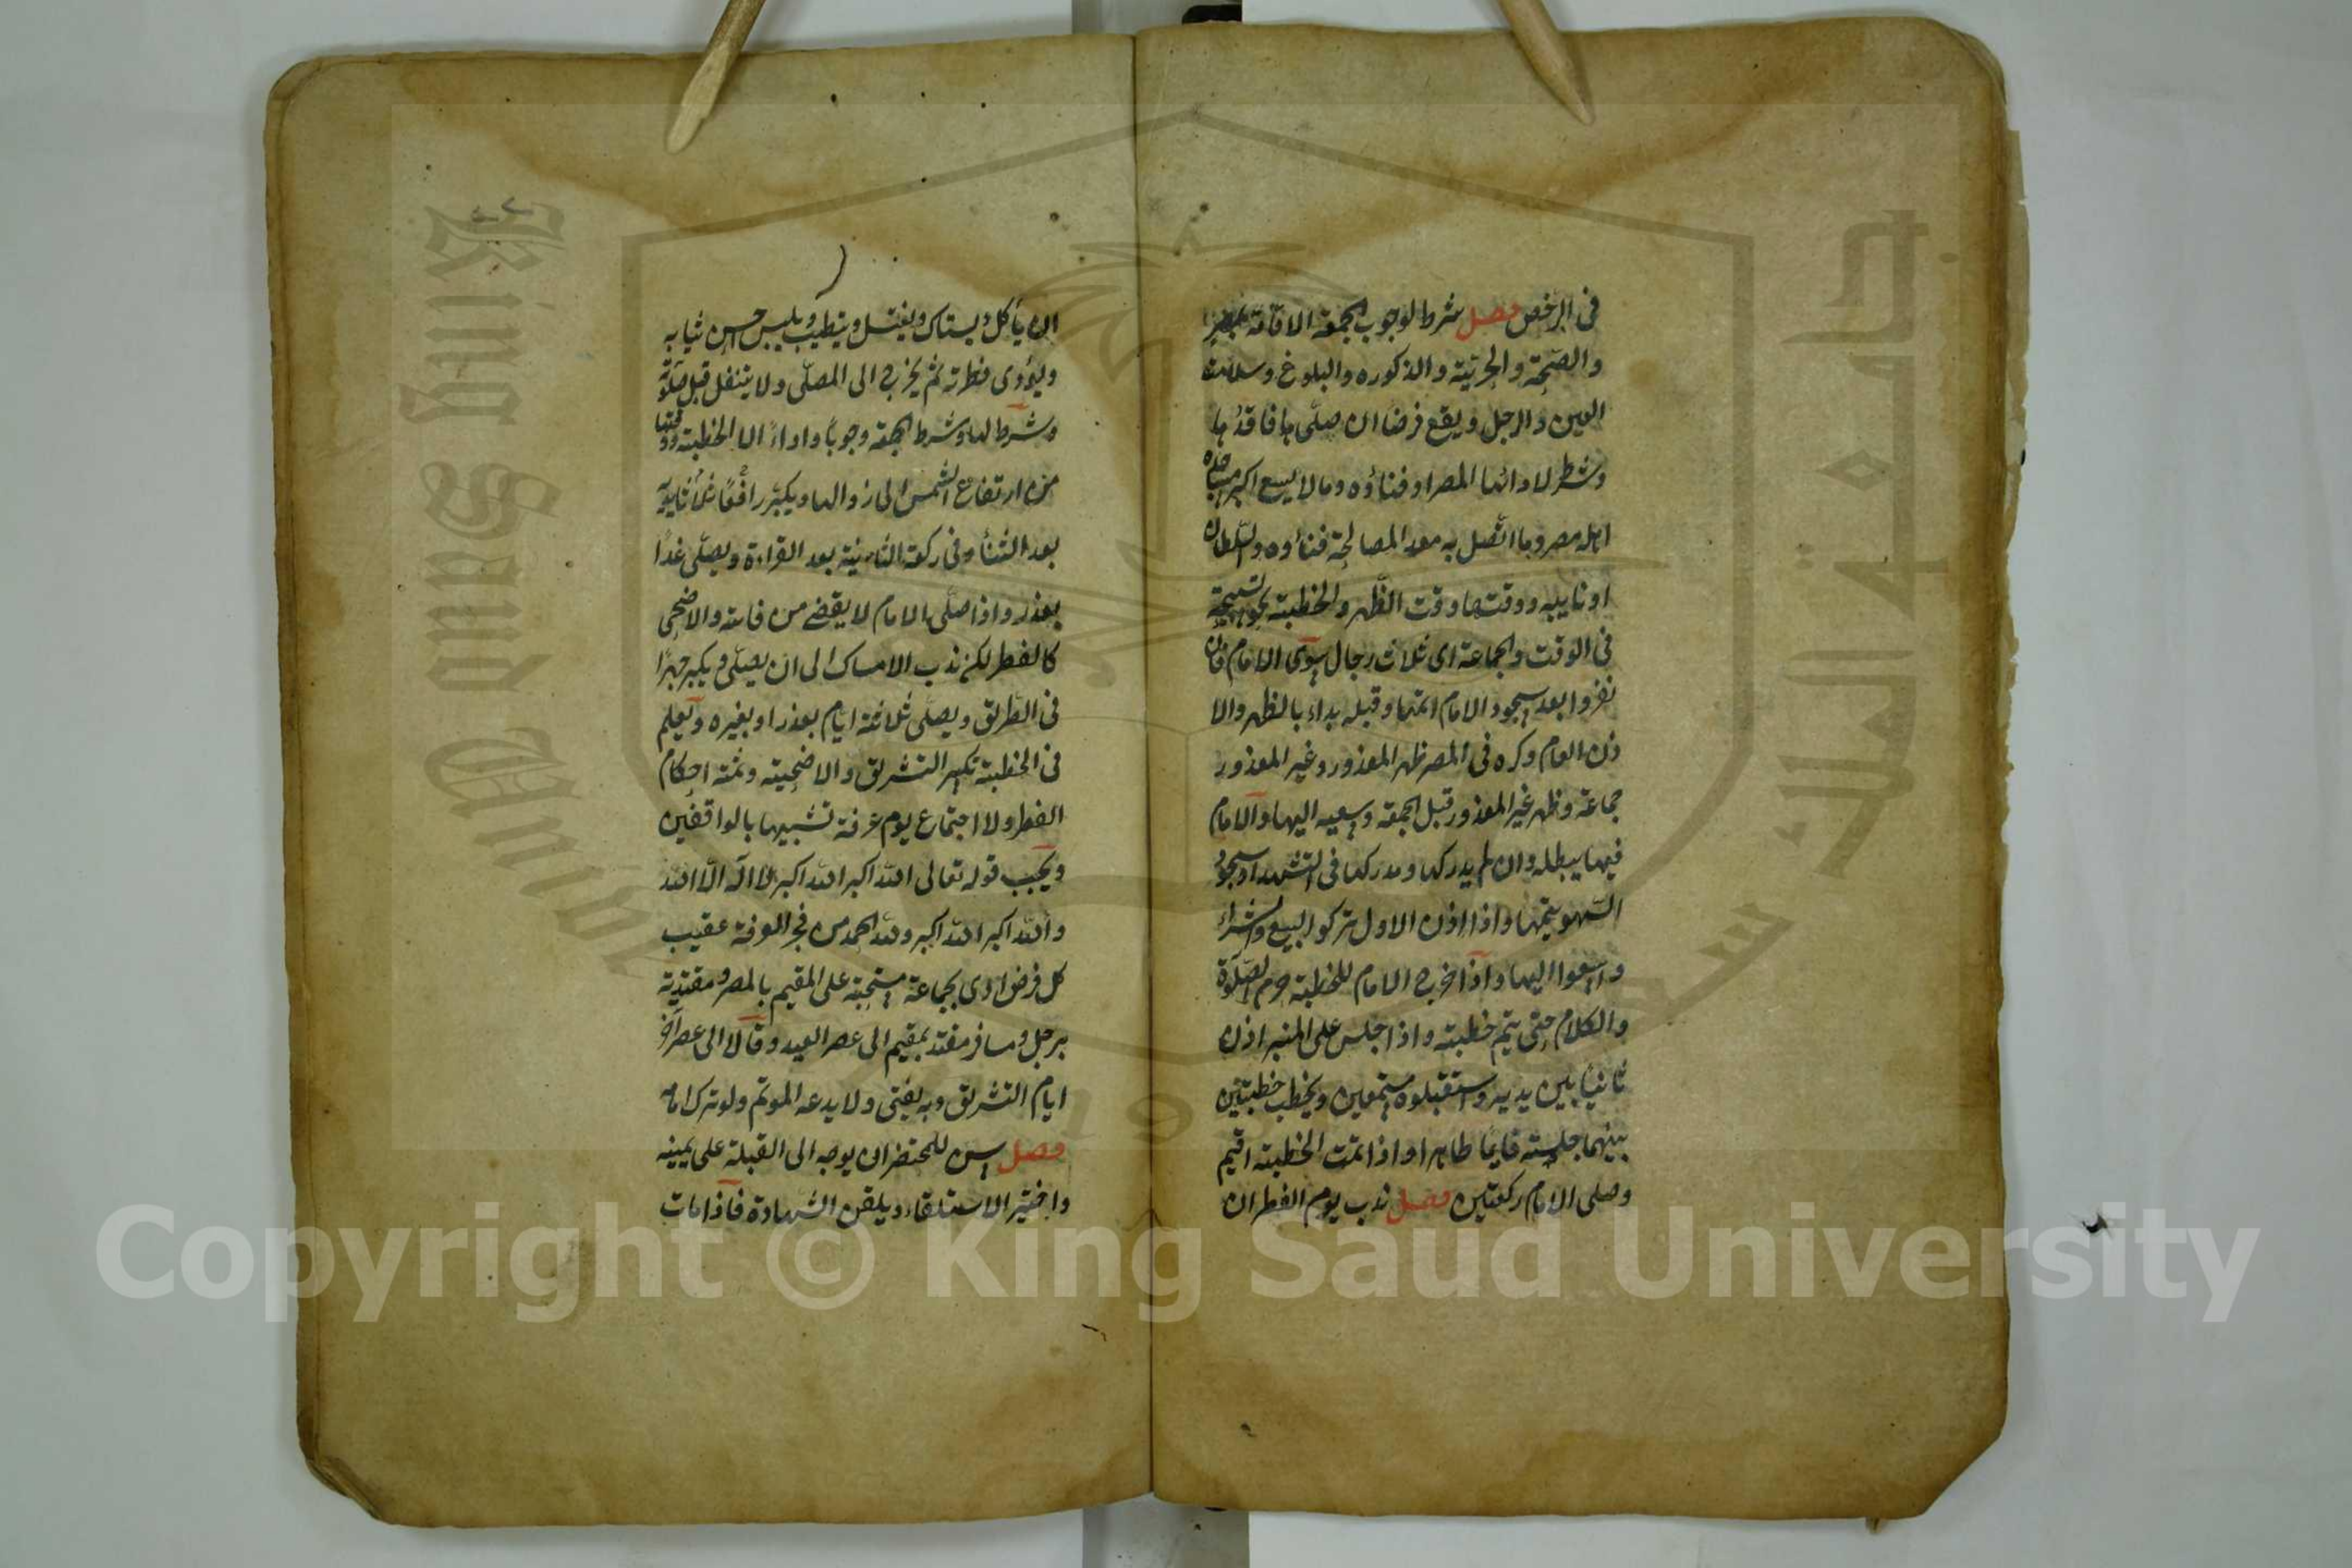 في الرخص فصل شرط لوجوب الجمعة الاقامة بمصر
والصحة والحرية والذكوره والبلوغ وسلامة
العين والرجل ويقع فرضا ان صلى بها فاقدها
وشرط لادائها المصر او فناؤه وما لا يسع اكبر مساجده
اهله مصر وما اتصل به معد المصالحة فناؤه والسلطان
او نايبه ووقتها وقت الظهر والخطبة نحو تسبيحة
في الوقت والجماعة اى ثلاث رجال سوى الامام فان
نفروا بعد سجود الامام اتمها وقبله بداء بالظهر والا
ذن العام وكره في المصر ظهر المعذور وغير المعذور
جماعة وظهر غير المعذور قبل الجمعة وسعيه اليها والامام
فيها يبطله وان لم يدركها ومدركها في التشهد او سجود
السهو يتمها واذا اذن الاول تركوا البيع والشراء
واسعوا اليها واذا خرج الامام للخطبة حرم الصلوة
والكلام حتى يتم خطبته واذا جلس على المنبر اذن
ثانيا بين يديه واستقبلوه مستمعين ويخطب خطبتين
بينهما جلسته قايما طاهرا واذا تمت الخطبته اقيم
وصلى الامام ركعتين فصل ندب يوم الفطر ان
ان يأكل ويستاك ويغتسل ويتطيب ويلبس احسن ثيابه
ويؤدى فطرته ثم يخرج الى المصلى ولا يتنفل قبل صلوة
وشرط لها وشرط الجمعة وجوبا واداء الا الخطبة ووقتها
من ارتفاع الشمس الى زوالها ويكبر رافعا ثلاثا
بعد الثناء وفى ركعة الثانية بعد القراءة ويصلى غدا
بعذر واذا صلى الامام لا يقضى من فاتته والاضحى
كالفطر لكن ندب الامساك الى ان يصلى ويكبر جهرا
في الطريق ويصلى ثلاثة ايام بعذر او بغيره ويعلم
في الخطبة تكبير التشريق والاضحية وثمة احكام
الفطر ولا اجتماع يوم عرفة تشبيها بالواقفين
ويجب قوله تعالى الله اكبر الله اكبر لا اله الا الله
والله اكبر الله اكبر ولله الحمد من فجر العرفة عقيب
كل فرض ادى بجماعة مستحبة على المقيم بالمصر ومقتدية
برجل ومسافر مقتد بمقيم الى عصر العيد وقالا الى عصر آخر
ايام التشريق وبه يفتى ولا يدعه الموتم ولو ترك امامه
فصل يسن للمحتضر ان يوجه الى القبلة على يمينه
واختير الاستلقاء ويلقن الشهادة فاذا مات
Copyright © King Saud University